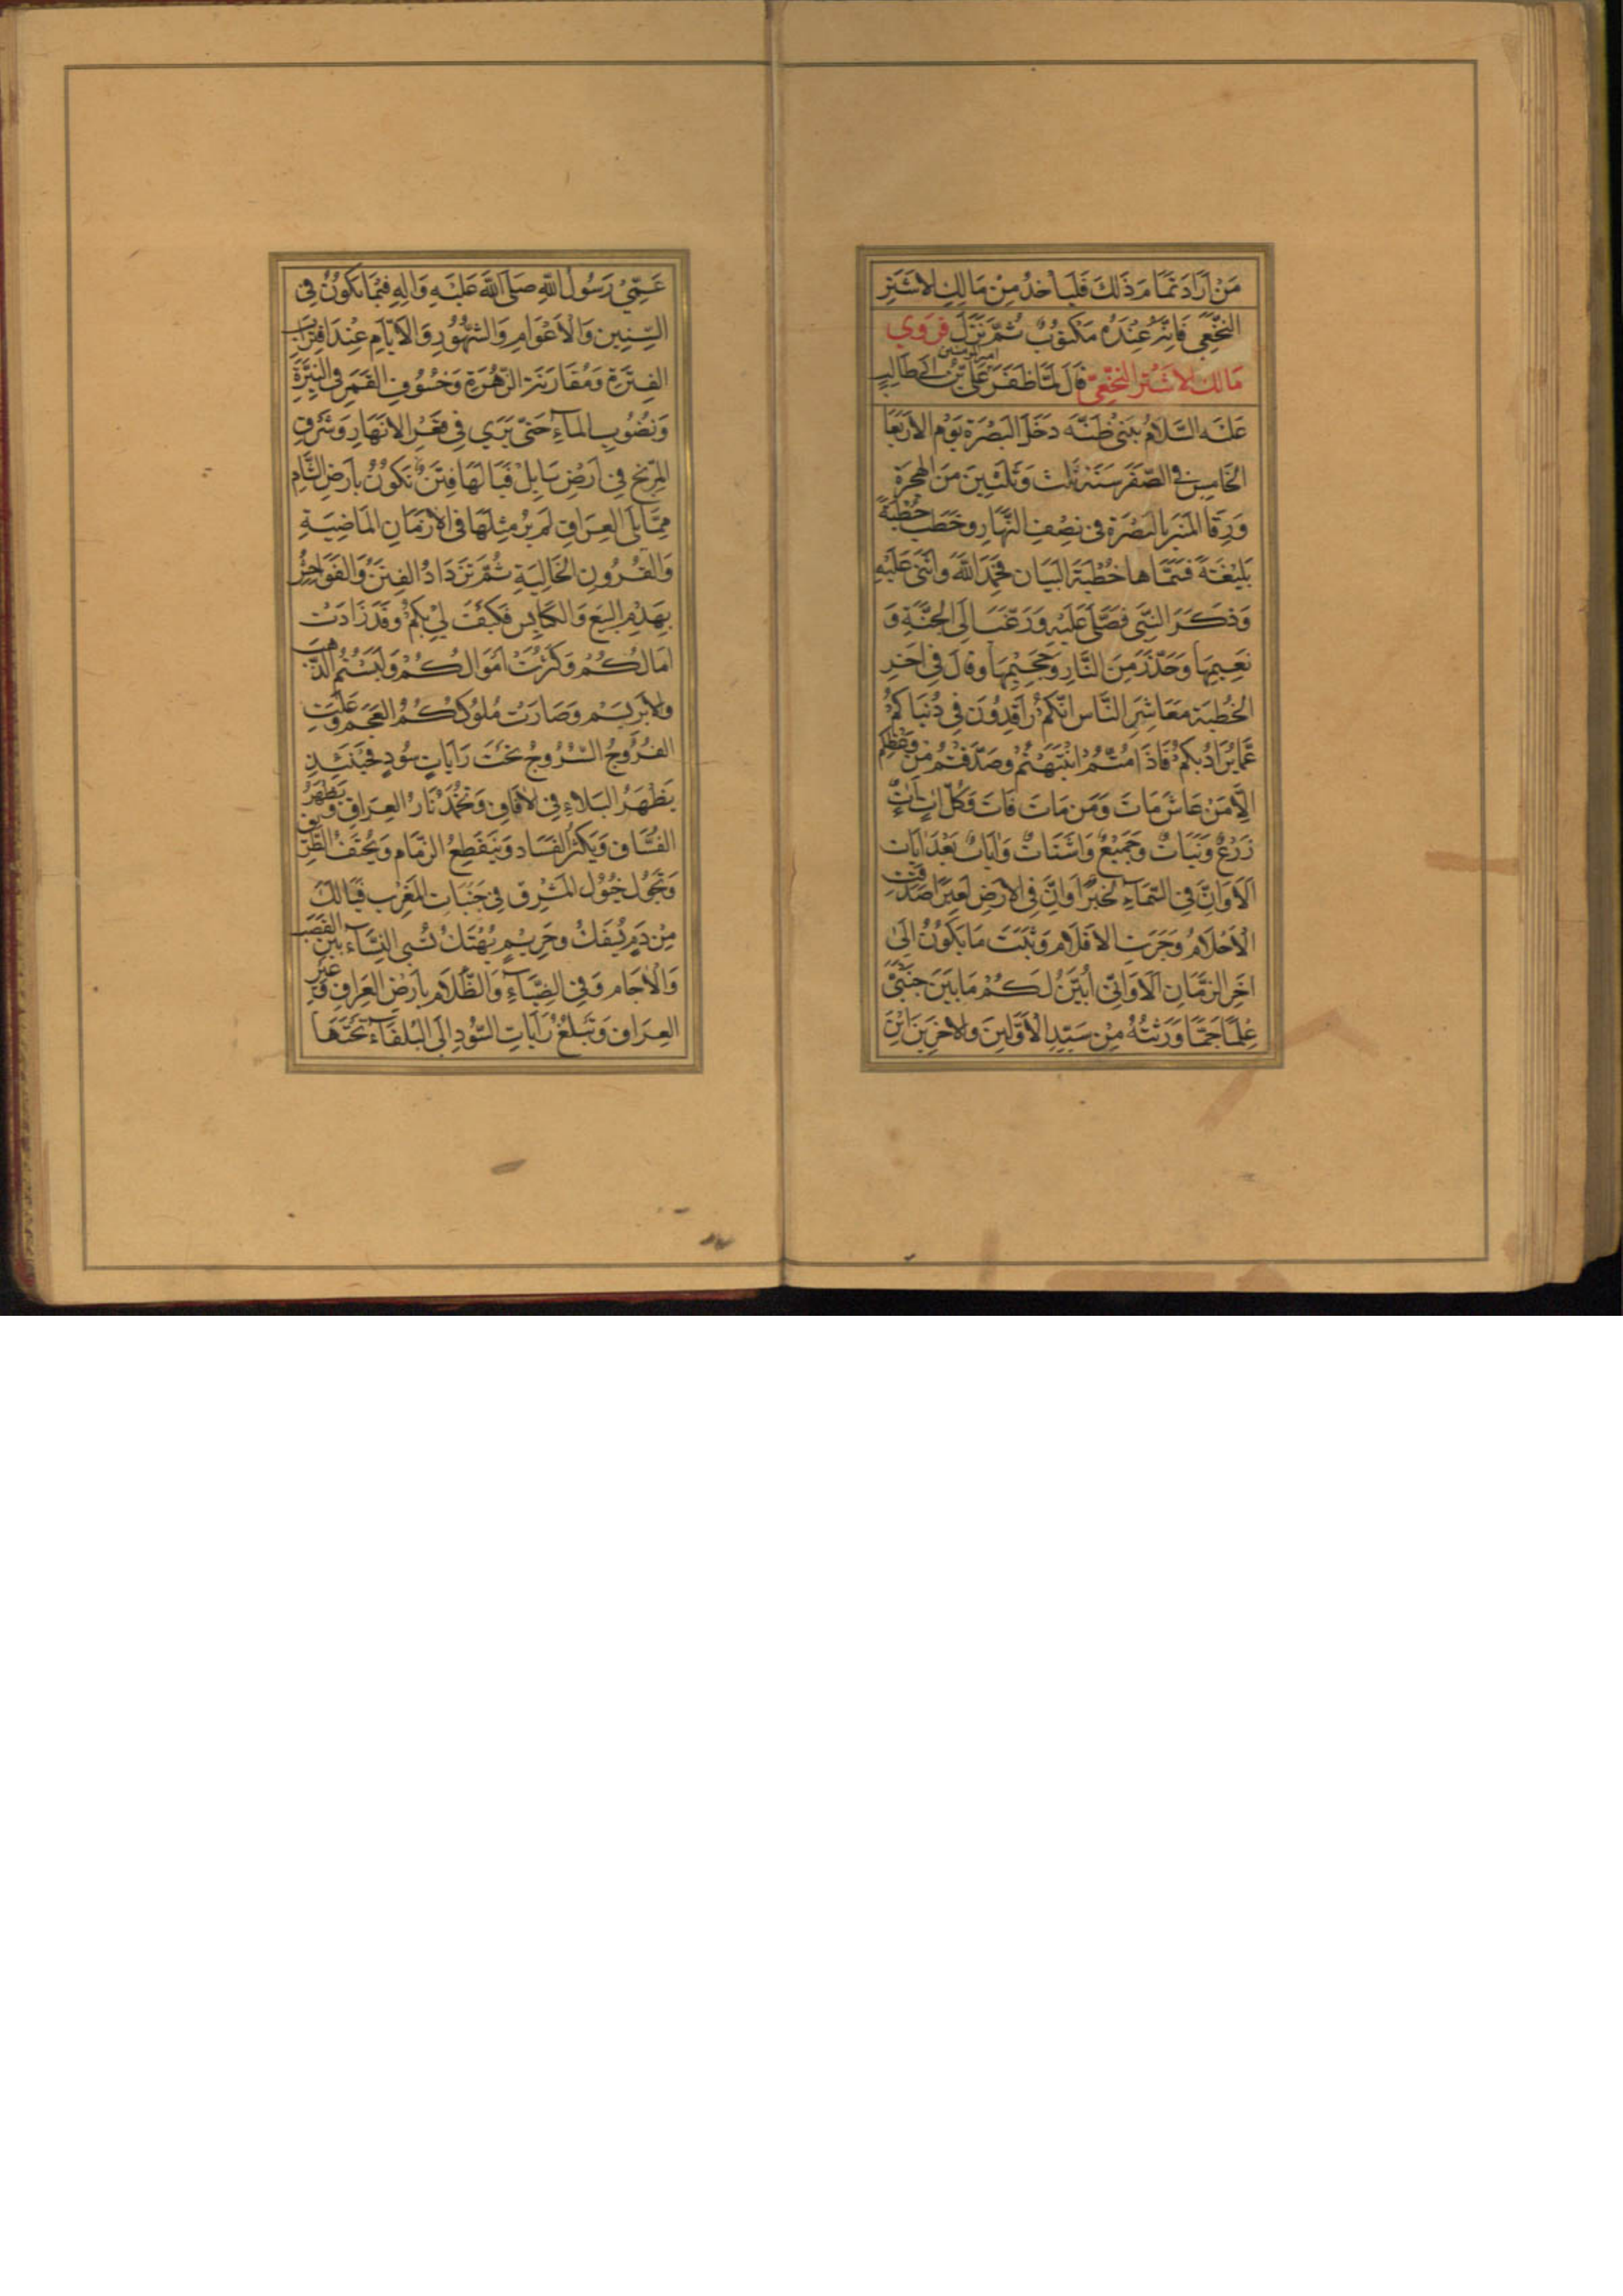 مَنْ اَرَادَ تَمَامَ ذَلِكَ فَلْيَأْخُذْ مِنْ مَالِكِ الاَشْتَرِ
النَّخَعِي فَاِنَّهُ عِنْدَهُ مَكْتُوبٌ ثُمَّ نَزَلَ فَرَوَي
مَالِكِ الاَشْتَرِ النَّخَعِيّ قَالَ لَمَّا ظَفَرَ اميرالمؤمنين عَلِيِّ بْنِ اَبِي طَالِبٍ
عَلَيْهِ السَّلَامُ دَخَلَ البَصْرَةَ يَوْمَ الاَرْبَعَا
الخَامِس فِي الصَّفَرِ سَنَةَ ثَلَثَ وَثَلَثِينَ مِنَ الْهِجْرَةِ
وَرَقَا الْمِنْبَرَ بِالبَصْرَةِ فِي نِصْفِ النَّهَارِ وَخَطَبَ خُطْبَةً
بَلِيغَةً فَسَمَّاهَا خُطْبَةَ الْبَيَان فَحَمِدَ اللَّهَ وَاَثْنَى عَلَيْهِ
وَذَكَرَ النَّبِي فَصَلَّى عَلَيْهِ وَرَغَّبَ اِلَى الْجَنَّةِ وَ
نَعِيمِهَا وَحَذَّرَ مِنَ النَّارِ وَجَحِيْمِهَا وَقَالَ فِي اخِرِ
الخُطْبَةِ مَعَاشِرَ النَّاسِ اِنَّكُمْ رَاقِدُونَ فِي دُنْيَاكُمْ
عَمَّا يُرَادُ بِكُمْ فَاِذَا مُتُّمْ انْتَبَهْتُمْ وَصَدَّقْتُمْ مَنْ
اِلَّا مَنْ عَاشَ مَاتَ وَمَنْ مَاتَ فَاتَ وَكُلُّ
زَرْعٌ وَنَبَاتٌ وَجَمِيْعٌ وَاَشْتَاتٌ وَاَيَاتٌ بَعْدَ اَيَات
اَلَا وَاِنَّ فِي السَّمَاءِ لَخَبَرًا وَاِنَّ فِي الاَرْضِ لَعِبَرًا صَدَقَتْ
الْاَحْلَامُ وَجَرَتِ الاَقْلَامُ وَثَبَتَ مَا يَكُونُ اِلَى
اخِرِ الزَّمَانِ اَلَا وَاِنّي اُبَيِّنُ لَكُمْ مَا بَيْنَ جَنْبَيَّ
عِلْمًا جَمًّا وَرَثْتُهُ مِنْ سَيِّدِ الْاَوَّلِينَ وَالاخِرِينَ اِبْنِ
عَمِّيْ رَسُولُ اللَّهِ صَلَّى اللَّهُ عَلَيْهِ وَالِهِ فِيْمَا يَكُونُ فِي
السِّنِينَ وَالْاَعْوَامِ وَالشُّهُورِ وَالْاَيَّامِ عِنْدَ اقْتِرَابِ
الفِتْرَةِ وَمُقَارَنَةِ الزُّهْرَةِ وَخُسُوفِ القَمَرِ فِي
وَنُضُوبِ المَآءِ حَتَّى يُرَي فِي قَعْرِ الاَنْهَارِ وَشَرَقِ
المِرِّيخِ فِي اَرْضِ بَابِلْ فَيَالَهَا فِتَنٌ تَكُونُ بِاَرْضِ الشَّامِ
مِمَّا يَلِى العِرَاقِ لَمْ يُرَ مِثْلَهَا فِي الاَزْمَانِ المَاضِيَةِ
وَالقُرُونِ الخَالِيَةِ ثُمَّ تَزْدَادُ الفِتَنُ وَالفَوَاحِشُ
بِهَدْمِ البِيَعِ وَالكَنَايِسِ فَكَيْفَ لِي بِكُمْ وَقَدْ زَادَتْ
اَمَالُكُمْ وَكَثُرَتْ اَمْوَالُكُمْ وَلَبَسْتُمْ الذَّهَبَ
وَالاَبْرِيسَمْ وَصَارَتْ مُلُوكُكُمُ العَجَمَ وَعَلَتِ
الفُرُوجُ السُّرُوجُ تَحْتَ رَايَاتٍ سُودٍ فَحِيْنَئِذٍ
يَظْهَرُ البَلَاءِ فِي الافَاقِ وَتَخْمُدُ نَارُ العِرَاقِ وَيَظْهَرُ
الفُسَّاقِ وَيَكْثُرُ الفَسَادِ وَيَنْقَطِعُ الزِّمَامِ
وَتَجُولُ خُيُولُ المَشْرِقِ فِي جَنَبَاتِ المَغْرِبِ فَيَالَكَ
مِنْ دَمٍ يُسْفَكُ وَحَرِيْمٍ يُهْتَكُ تُسْبِى النِّسَآءُ بَيْنَ القَصَبِ
وَالْاجَامِ وَفِي الضِّيَآءِ وَالظَّلَامِ بِاَرْضِ العِرَاقِ وَغَيْرِ
العِرَاقِ وَتَبْلُغُ رَايَاتِ السُّودِ اِلَى البَلْقَآءِ تَحْتَهَا